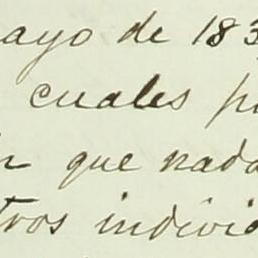 ayo de 183
cuales p
que nada
tros indivi